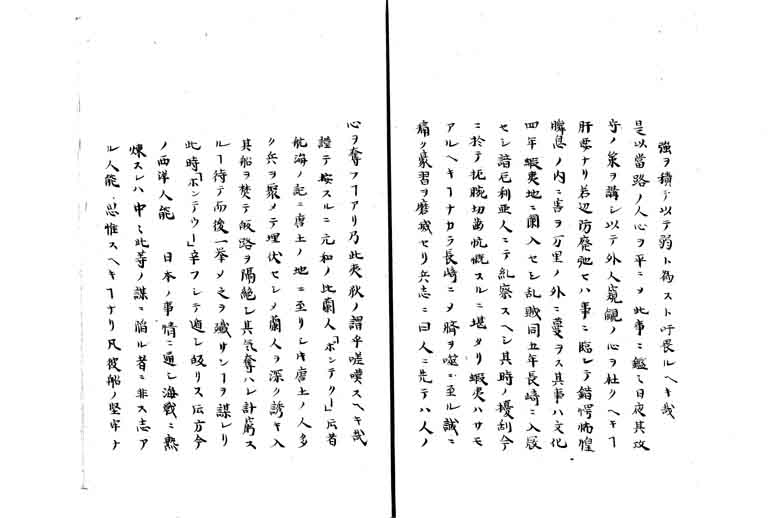 強ヲ積テ以テ弱ト為スト吁畏ルヘキ哉
是以當路ノ人心ヲ平ニメ此事ニ鑑ミ日夜其攻
守ノ策ヲ講シ以テ外人窺覦ノ心ヲ杜クヘキヿ
肝要ナリ若辺防廃弛セハ事ニ臨レテ錯愕怖惶
瞬息ノ内ニ害ヲ万里ノ外ニ蔓ヲス其事ハ文化
四年蝦夷地ニ闌入セシ乱賊同五年長崎ニ入版
セシ諳厄利亜人ニテ糺察スヘシ其時ノ擾乱今
ニ於テ扼腕切歯忼慨スルニ堪タリ蝦夷ハサモ
アルヘキヿナカラ長崎ニメ臍ヲ噬ニ至ル誠ニ
痛ク蒙習ヲ磨滅セリ兵志ニ曰人ニ先テハ人ノ
心ヲ奪フヿアリ乃此夷狄ノ謂乎嗟嘆スヘキ哉
謹テ按スルニ元和ノ比蘭人「ボンテクー」云者
航海ノ記ニ唐土ノ地ニ至リシキ唐土ノ人多
ク兵ヲ聚メテ埋伏セシメ蘭人ヲ深ク誘キ入
其船ヲ焚テ皈路ヲ隔絶シ其気奪ハレ計窮ス
ルヿ待テ而後一挙メ之ヲ殲サンヿヲ謀レリ
此時「ボンテウ」辛フシテ遁レ皈リス云方今
ノ西洋人能 日本ノ事情ニ通シ海戦ニ熟
煉スレハ中々此等ノ謀ニ陥ル者ニ非ス志ア
ル人能ニ思惟スヘキヿナリ凡彼船ノ堅牢ナ